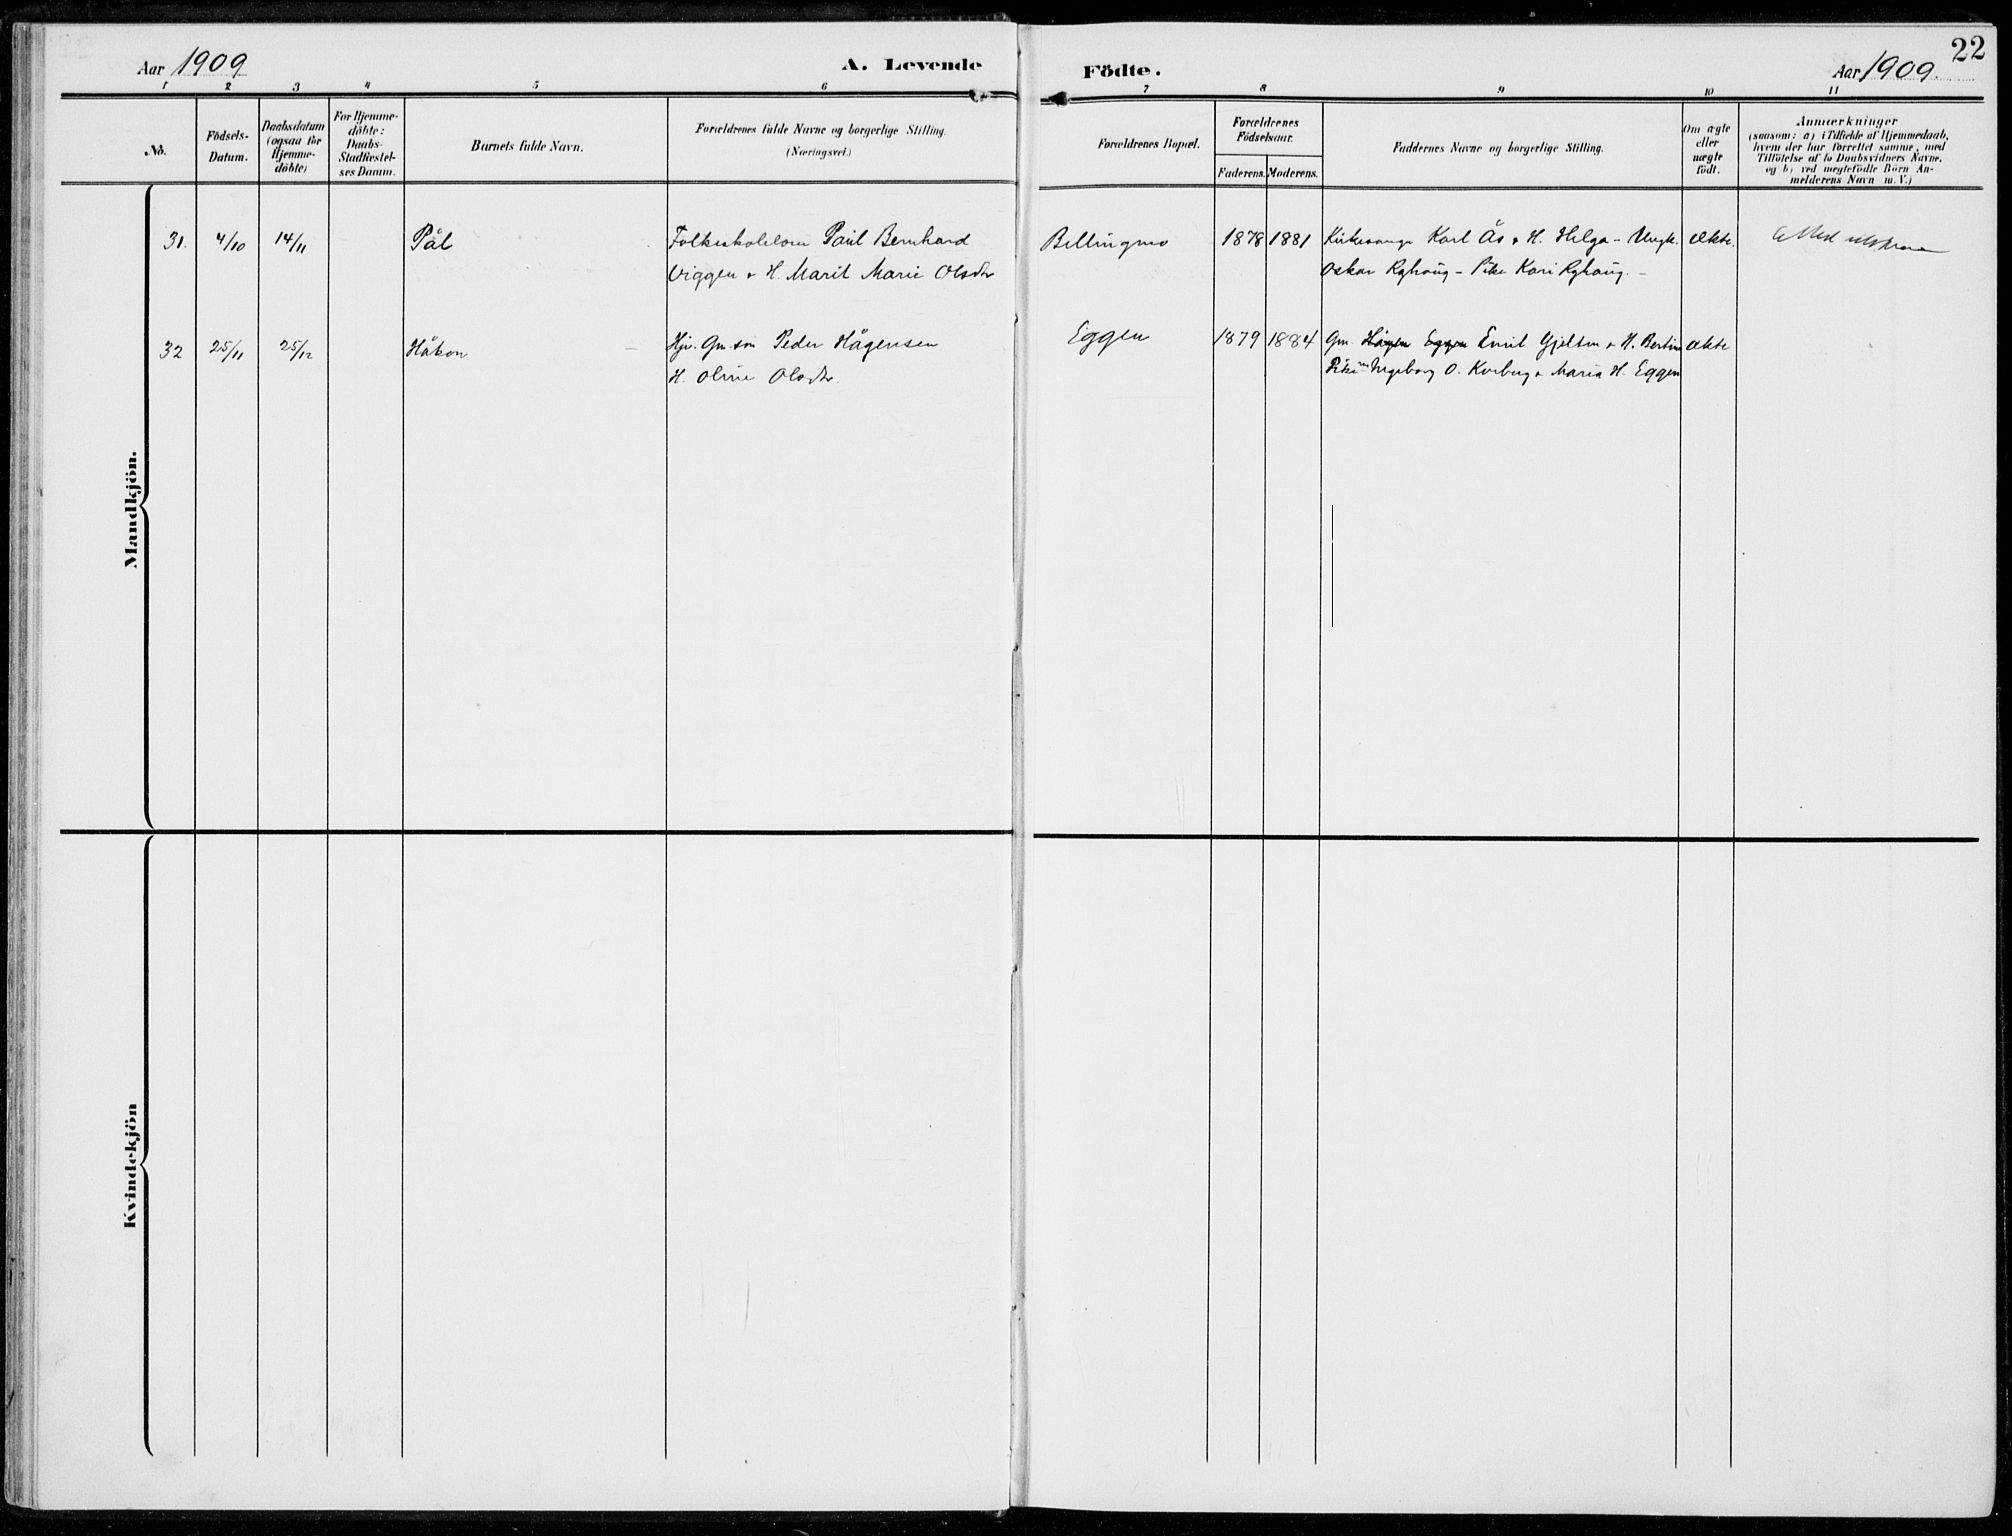 22
Aar 1909
A. Levende
Födte.
Aar 1909.
1 2 3 4 5 6
7 8 9 10 11
No.
Födsels-
Datum.
Daabsdatum
(ogsaa for
Hjemme-
döbte)
For Hjemme-
döbte:
Daabs-
Stadfæstel-
ses Datum.
Barnets fulde Navn.
Forældrenes fulde Navne og borgerlige Stilling.
(Næringsvei.)
Forældrenes Bopæl.
Forældrenes
Födselsaar.
Faderens. Moderens.
Faddernes Navne og borgerlige Stilling.
Om ægte
eller
uægte
födt.
Anmærkninger
(saasom: a) i Tilfælde af Hjemmedaab,
hvem der har forrettet samme, med
Tilföielse af to Daabsvidners Navne,
og b) ved uægtefödte Börn An-
melderens Navn m. V.)
Mandkjön.
31. 4/10 14/11 Pål Folkeskolelærer Paul Bernhard Bellingmo 1878 1881 Kirkesanger Karl Ås & H. Helga - Ungk. ækte. Attest
Viggen & H. Marit Marie Olsdtr Oskar Ryhaug - Pike Kari Ryhaug. -
32 25/11 25/12 Håkon Gm. søn Peder Hågensen Eggen 1879 1884 Gm. Hågen Eggen Emil Gjelten & H. Bertine ækte
H. Oline Olsdtr. Pike Ingeborg O. Kvebeg & Maria H. Eggen
Kvindekjön